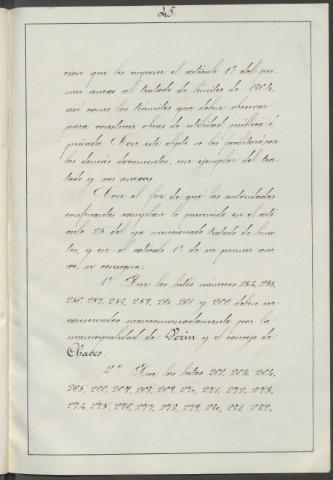 25
cion que les impone el artículo 1º del pri-
mer anexo al tratado de límites de 1864,
así como los trámites que deben observar
para construir obras de utilidad pública ó
privada. Con este objeto se les facilitarán con
los demás documentos, un ejemplar del tra-
tado y sus anexos.
Con el fin de que las autoridades
confinantes cumplan lo prevenido en el artí-
culo 25 del ya mencionado tratado de lími-
tes, y en el artículo 1º de su primer ane-
xo, se consigna:
1º Que los hitos números 254, 255,
256, 257, 258, 259, 260, 261 y 262 deben ser
conservados mancomunadamente por la
municipalidad de Verin y el concejo de
Chaves.
2º Que los hitos 262, 263, 264,
265, 266, 267, 268, 269, 270, 271, 272, 273,
274, 275, 276, 277, 278, 279, 280, 281, 282,